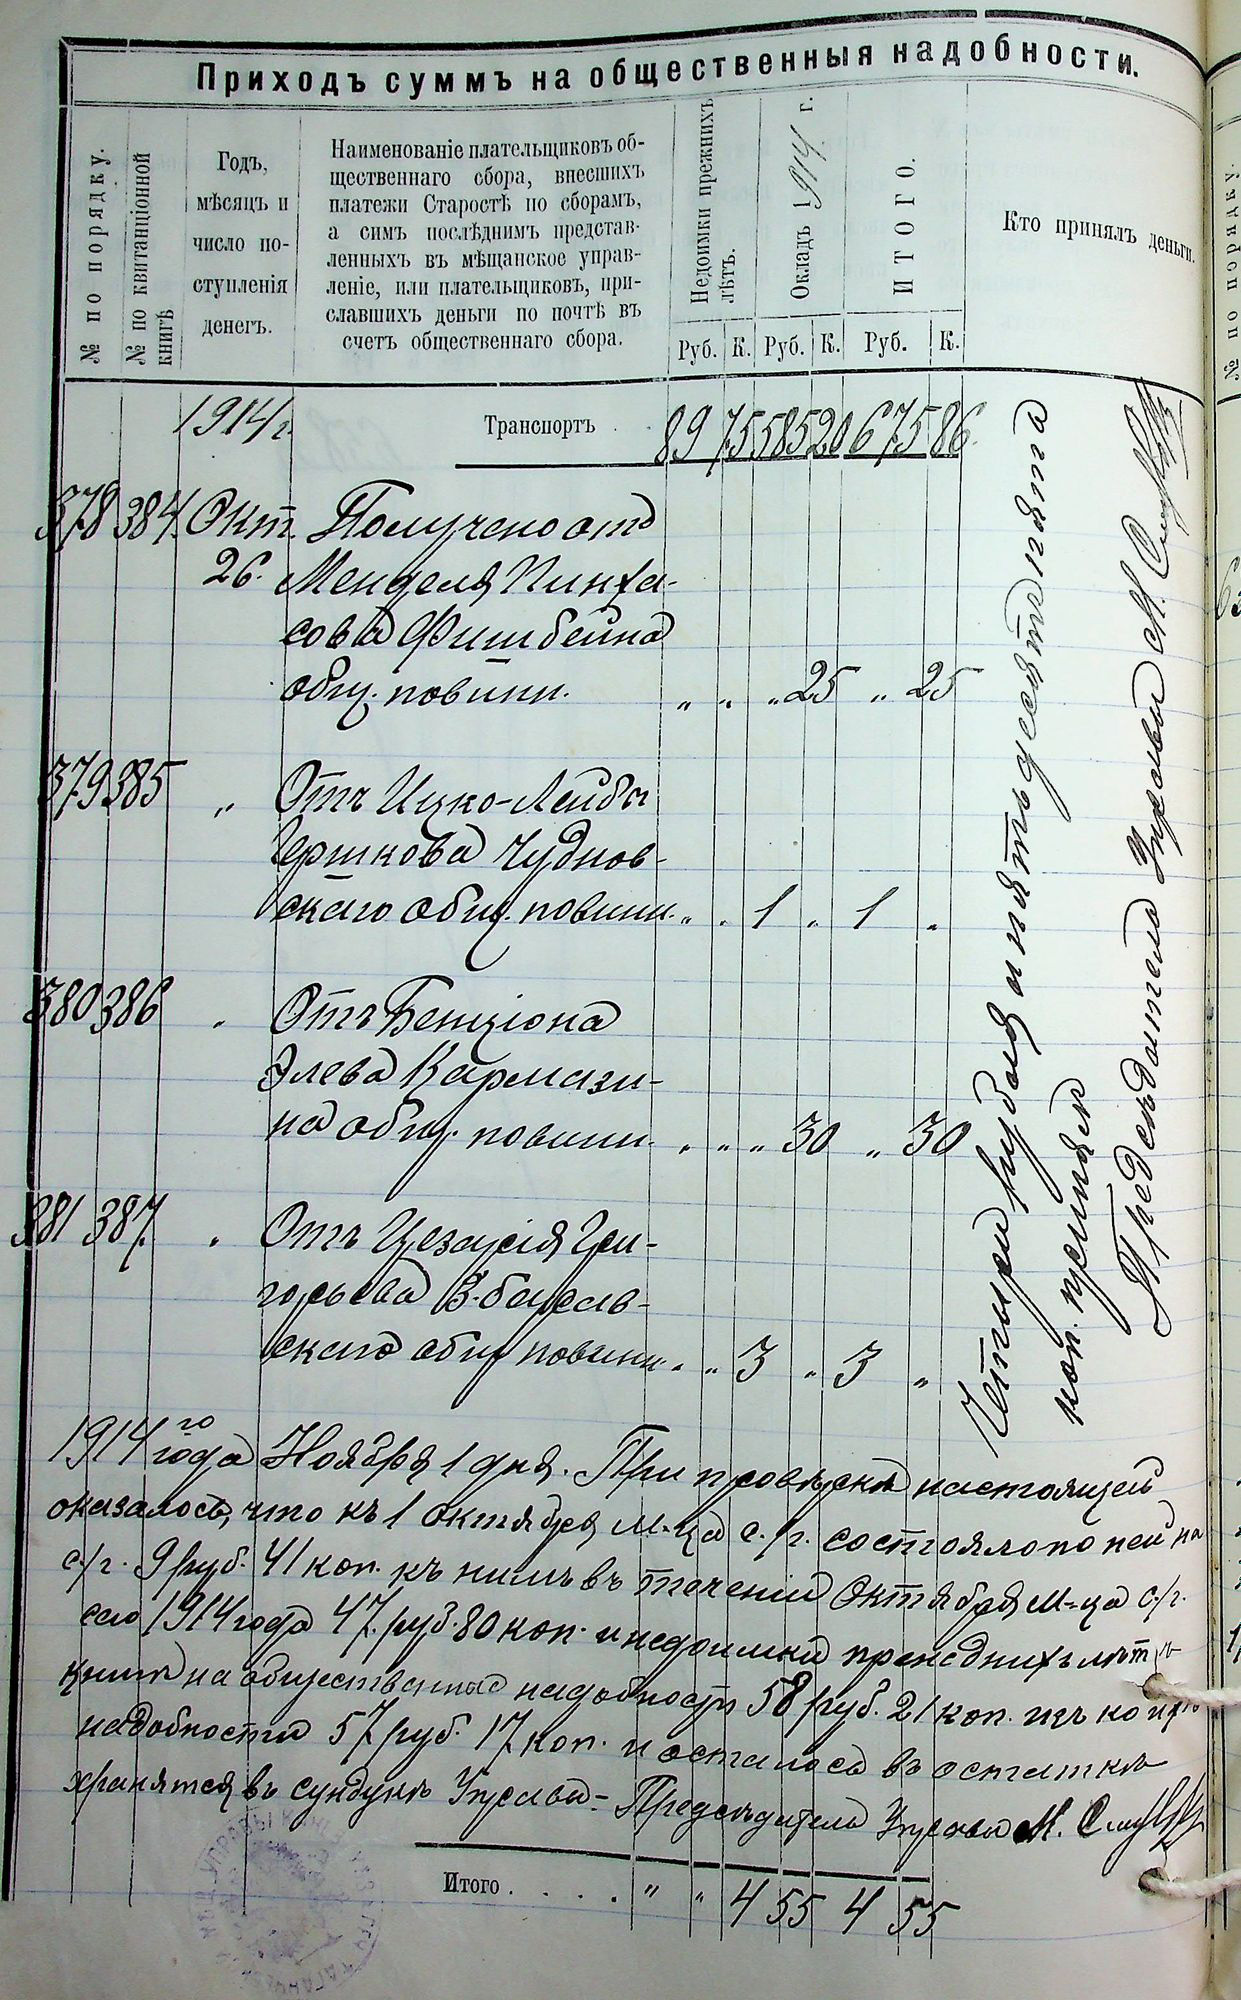 Приходъ суммъ на общественныя надобности.
№ по порядку.
№ по квитанціонной
книгѣ
Годъ,
мѣсяцъ и
число по-
ступленія
денегъ.
Наименованіе плательщиковъ об-
щественнаго сбора, внесшихъ
платежи Старостѣ по сборамъ,
а симъ послѣднимъ представ-
ленныхъ въ мѣщанское управ-
леніе, или плательщиковъ, при-
славшихъ деньги по почтѣ въ
счетъ общественнаго сбора.
Недоимки прежнихъ
лѣтъ.
Окладъ 1914 г.
ИТОГО.
Кто принялъ деньги.
Руб. К. Руб. К. Руб. К.
1914 г. Транспортъ 89 75 585 20 675 86
378 384 Окт. Получено отъ
26. Менделя Пинха-
сова Фишбейна
общ. повинн. „ „ „ 25 „ 25
379 385 „ Отъ Ицко-Лейбы
Гершкова Чуднов-
скаго общ. повинн. „ „ 1 „ 1 „
380 386 „ Отъ Бенціона
Элева Кармази-
на общ. повинн. „ „ „ 30 „ 30
381 387. „ Отъ Цезарія Гри-
горьева З.
скаго общ. повинн. „ „ 3 „ 3 „
Четыре рубля и пятьдесятъ пять
коп. принялъ
Предсѣдатель Управы М.
1914 го года Ноября 1 дня. При провѣркѣ настоящей
оказалось, что къ 1 Октября м-ца с./г. состояло по ней на
с/г. 9 руб. 41 коп. къ нимъ въ теченіи Октября м-ца с./г.
сего 1914 года 47 руб. 80 коп. и недоимки прежднихъ лѣтъ
книгѣ на общественные надобности 58 руб. 21 коп. изъ
надобности 57 руб. 17 коп. и осталось въ остаткѣ
хранятся въ сундукѣ Управы - Предсѣдатель Управы М.
Итого . . . . „ „ 4 55 4 55
№ по порядку.